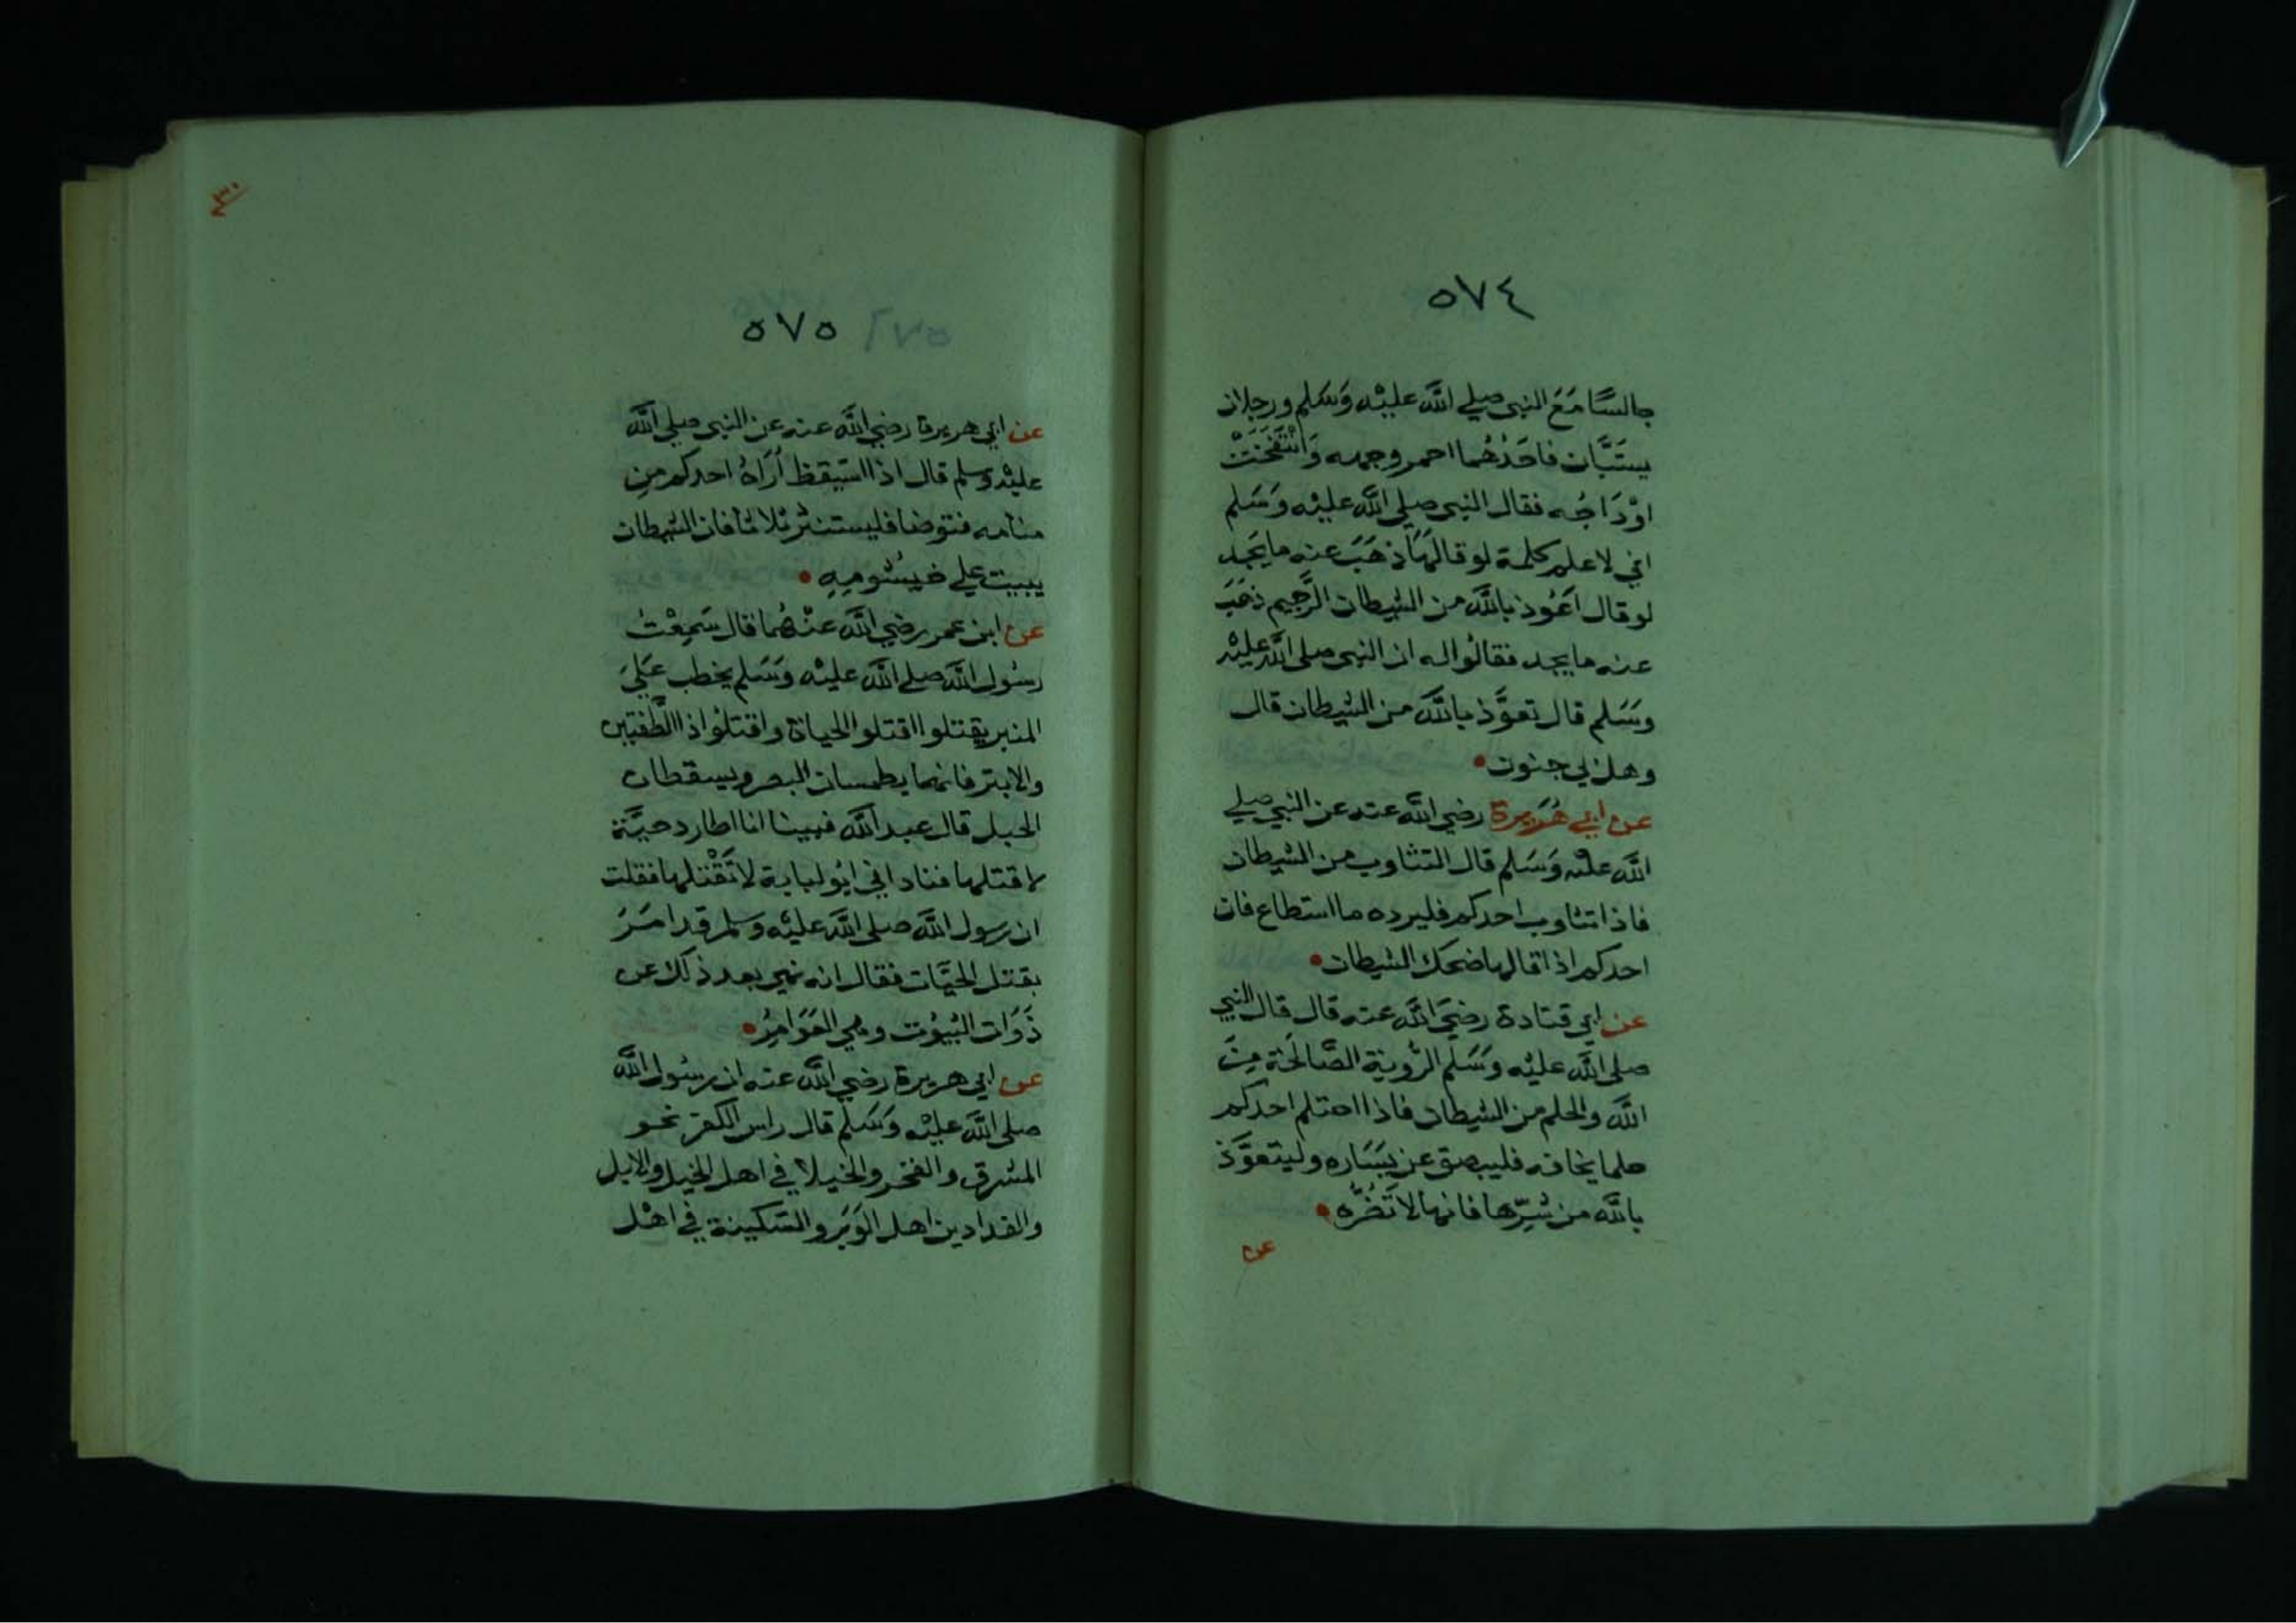 ٥٧٤
جالسًا مَعَ النبى صلى اللَّه عليْه وَسَلم ورجلان
يستَبَّان فاحَدُهُما احمر وجهه وَانْتَفَخَتْ
اوْدَاجُه فقال النبى صلى اللَّه عليْه وَسَلم
اني لاعلم كلمة لو قالهَا ذهَبَ عنه ما يَجد
لو قال اَعُوذ باللَّه من الشيطان الرَّجيم ذهَبَ
عنه ما يجد فقالُوا له ان النبى صلى اللَّه عليْه
وسَلم قال تعوَّذ باللَّه من الشيطان قال
وهل بي جنون
عن ابي هُرَيرة رضي اللَّه عنه عن النبي صلى
اللَّه عليْه وَسَلم قال التثاوب من الشيطان
فاذا تثاوب احدكم فليرده ما استطاع فان
احدكم اذا قالها ضحك الشيطان
عن ابي قتادة رضيَ اللَّه عنه قال قال النبي
صلى اللَّه عليْه وَسَلم الرُّوية الصَّالحَة مِنَ
اللَّه والحلم من الشيطان فاذا احتلم احدكم
حلما يخافه فليبصق عن يَسَاره وليتعوَّذ
باللَّه من شرِّها فانها لا تَضُرُّه
عن
٤٣٠
٥٧٥ ٢٧٥
عن ابي هريرة رضي اللَّه عنه عن النبى صلى اللَّه
عليْه وسلم قال اذا استيقظ اُرَاهُ احدكم من
منامه فتوضا فليستنثر ثلاثا فان الشيطان
يبيت على خيشومِهِ
عن ابن عمر رضي اللَّه عنْهُما قال سَمِعْتُ
رسُول اللَّه صلى اللَّه عليْه وَسَلم يخطب عَلَى
المنبر يقتلوا اقتلوا الحياة واقتلُوا ذا الطُّفتين
والابتر فانهما يطمسان البصر ويسقطان
الحبل قال عبد اللَّه فبينا انا اطارد حيَّة
لاقتلها فناداني ابُو لبابة لا تَقْتلها فقلت
ان رسول اللَّه صلى اللَّه عليْه وسلم قد امَرَ
بقتل الحيَّات فقال انه نهى بعد ذلك عن
ذَوَات البُيوُت وهي العَوَامِرُ
عن ابي هريرة رضي اللَّه عنه ان رسُول اللَّه
صلى اللَّه عليْه وَسَلم قال راس الكفر نحو
المشرق والفخر والخيلا في اهل الخيل والابل
والفدادين اهل الوَبَر والسَّكينة في اهْل